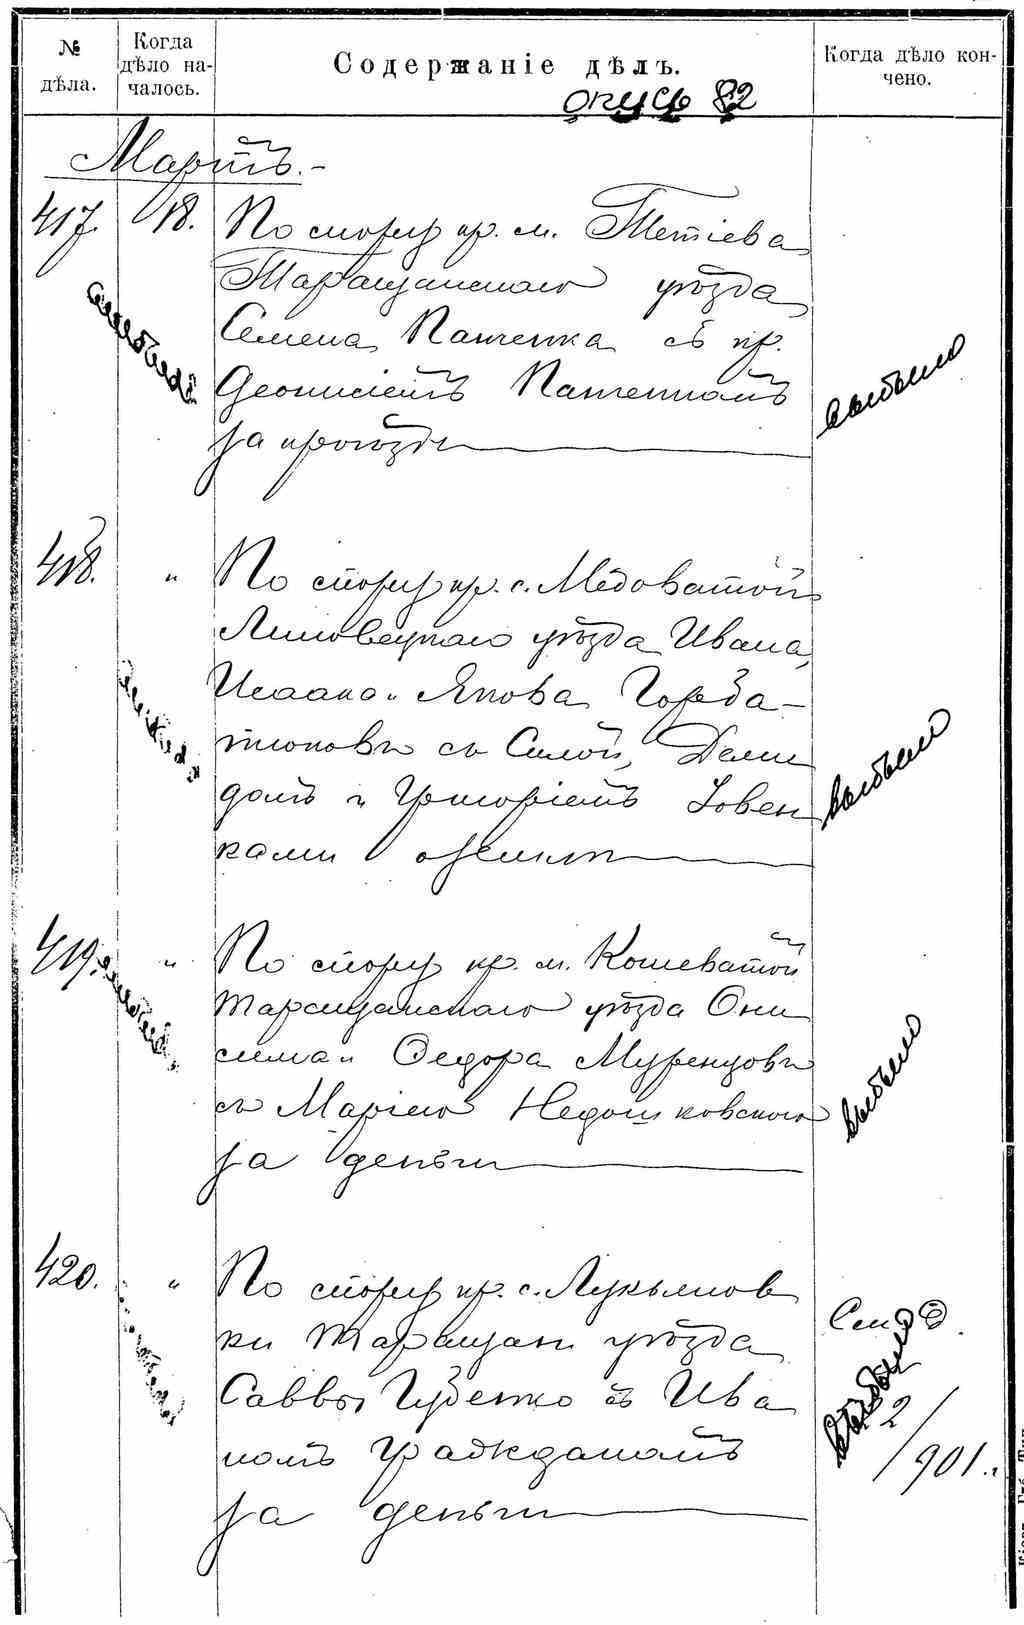 № дѣла.
Когда дѣло началось.
Содержаніе дѣлъ.
Когда дѣло кончено.
опись 82
Мартъ.-
417. 18. По спору кр. м. Тетіева
Таращанскаго уѣзда
Семена Панченка съ кр.
Деонисіемъ Панченкомъ
за проѣздъ
выбыло
418. " По спору кр. с. Медоватой
Липовецкаго уѣзда Ивана,
Исаака и Якова Горба-
тюковъ съ Силой, Деми
домъ и Григоріемъ Іовен
ками о землѣ
выбыло
419. " По спору кр. м. Кошеватой
Таращанскаго уѣзда Они
сима и Федора Муренцовъ
съ Маріею Недошковскою
за деньги
выбыло
420. " По спору кр. с. Лукьянов
ки Таращан. уѣзда
Саввы Губенко съ Ива
номъ Гражданомъ
за деньги
выбыло
2/901 г.